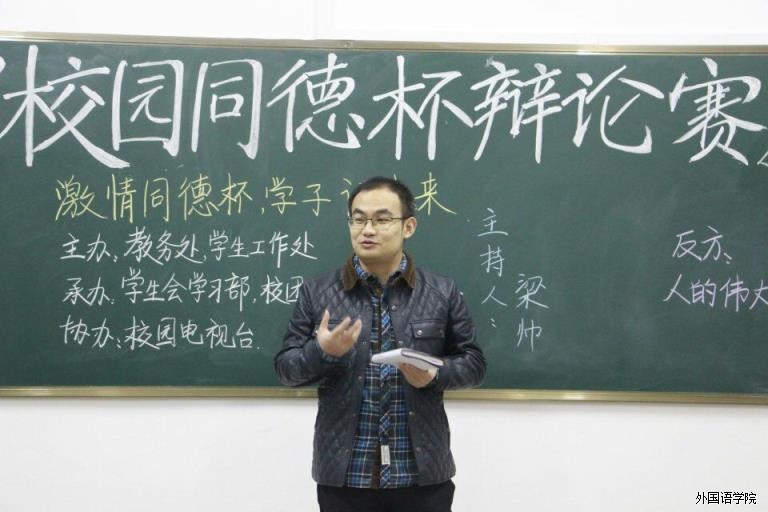 校园同德杯辩论赛
激情同德杯,学子 来
主办:教务处、学生工作处
承办:学生会学习部,校团
协办:校园电视台.
主持人:
梁帅
反方:
人的伟大
外国语学院